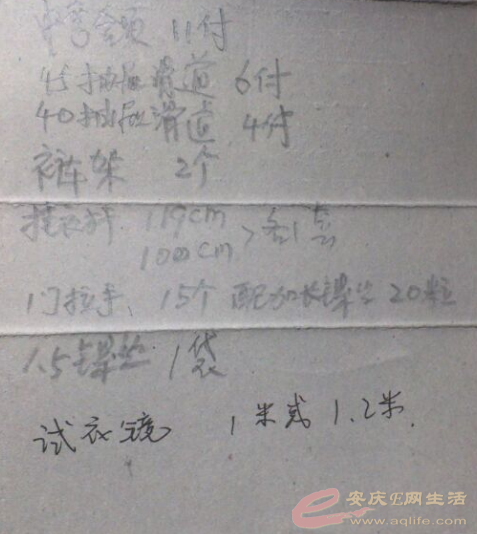 中弯合页 11付
45抽屉滑道 6付
40抽屉滑道 4付
裤架 2个
挂衣杆 119cm
100cm >各1套
门拉手, 15个 配加长螺丝 20粒
1.5螺丝 1袋
试衣镜 1米或1.2米.
安庆E网生活
www.aqlife.com